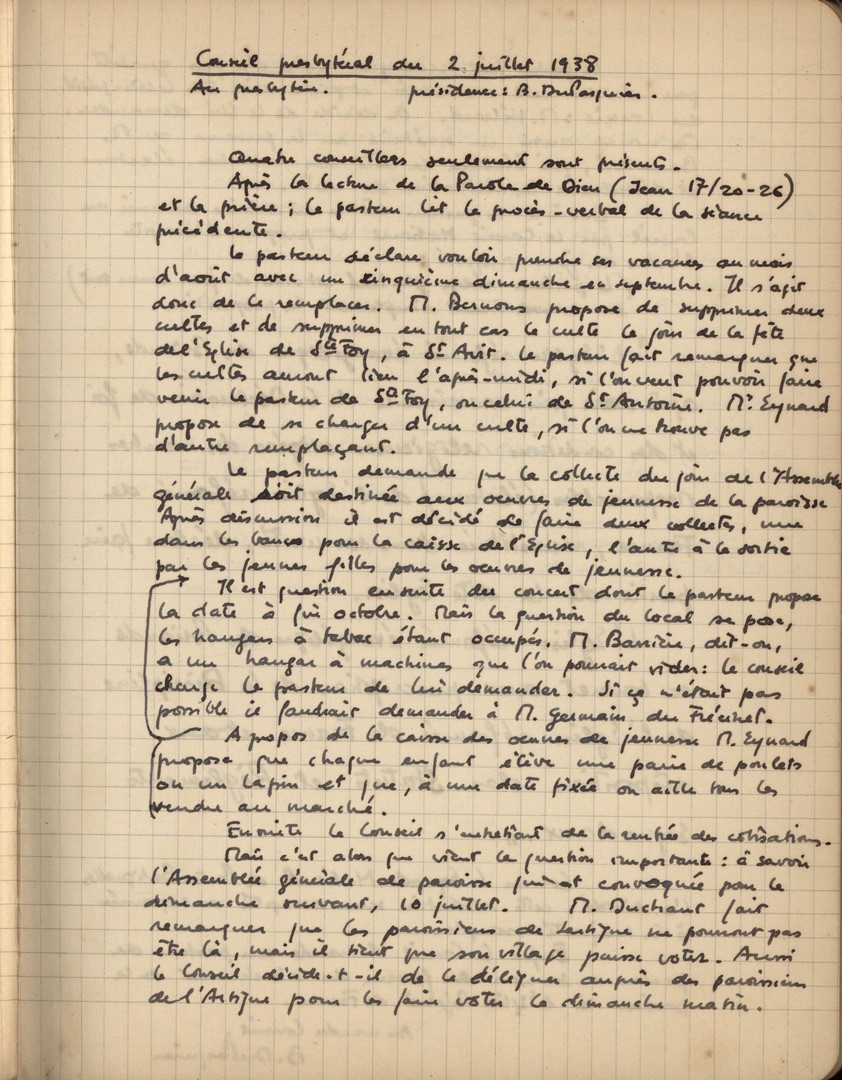 Conseil presbytéral du 2 juillet 1938
Au presbytère. présidence: B. DuPasquier.
Quatre conseillers seulement sont présents.
Après la lecture de la Parole de Dieu (Jean 17/20-26)
et la prière; le pasteur lit le procès-verbal de la séance
précédente.
Le pasteur déclare vouloir prendre ses vacances au mois
d'août avec un cinquième dimanche en septembre. Il s'agit
donc de le remplacer. M. Bernous propose de supprimer deux
cultes et de supprimer en tout cas le culte le jour de la fête
de l'Eglise de Ste Foy, à St Avit. Le pasteur fait remarquer que
les cultes auront lieu l'après-midi, si l'on veut pouvoir faire
venir le pasteur de Ste Foy, ou celui de St Antoine. Mr Eynard
propose de se charger d'un culte, si l'on ne trouve pas
d'autre remplaçant.
Le pasteur demande que la collecte du jour de l'Assemblée
générale soit destinée aux oeuvres de jeunesse de la paroisse
Après discussion il est décidé de faire deux collectes, une
dans les bancs pour la caisse de l'Eglise, l'autre à la sortie
par les jeunes filles pour les oeuvres de jeunesse.
Il est question ensuite du concert dont le pasteur propose
la date à fin octobre. Mais la question du local se pose,
les hangars à tabac étant occupés. M. Barrière, dit-on,
a un hangar à machines que l'on pourrait vider: le conseil
charge le pasteur de lui demander. Si ça n'était pas
possible il faudrait demander à M. Germain du Frécinet.
A propos de la caisse des oeuvres de jeunesse M. Eynard
propose que chaque enfant élève une paire de poulets
ou un lapin et que, à une date fixée on aille tous les
vendre au marché.
Ensuite le Conseil s'entretient de la rentrée des cotisations.
Mais c'est alors que vient la question importante: à savoir
l'Assemblée générale de paroisse qui est convoquée pour le
dimanche suivant, 10 juillet. M. Duchant fait
remarquer que les paroissiens de Lartigue ne pourront pas
être là, mais il tient que son village puisse voter. Aussi
le Conseil décide-t-il de le déléguer auprès des paroissiens
de l'Artigue pour les faire voter le dimanche matin.